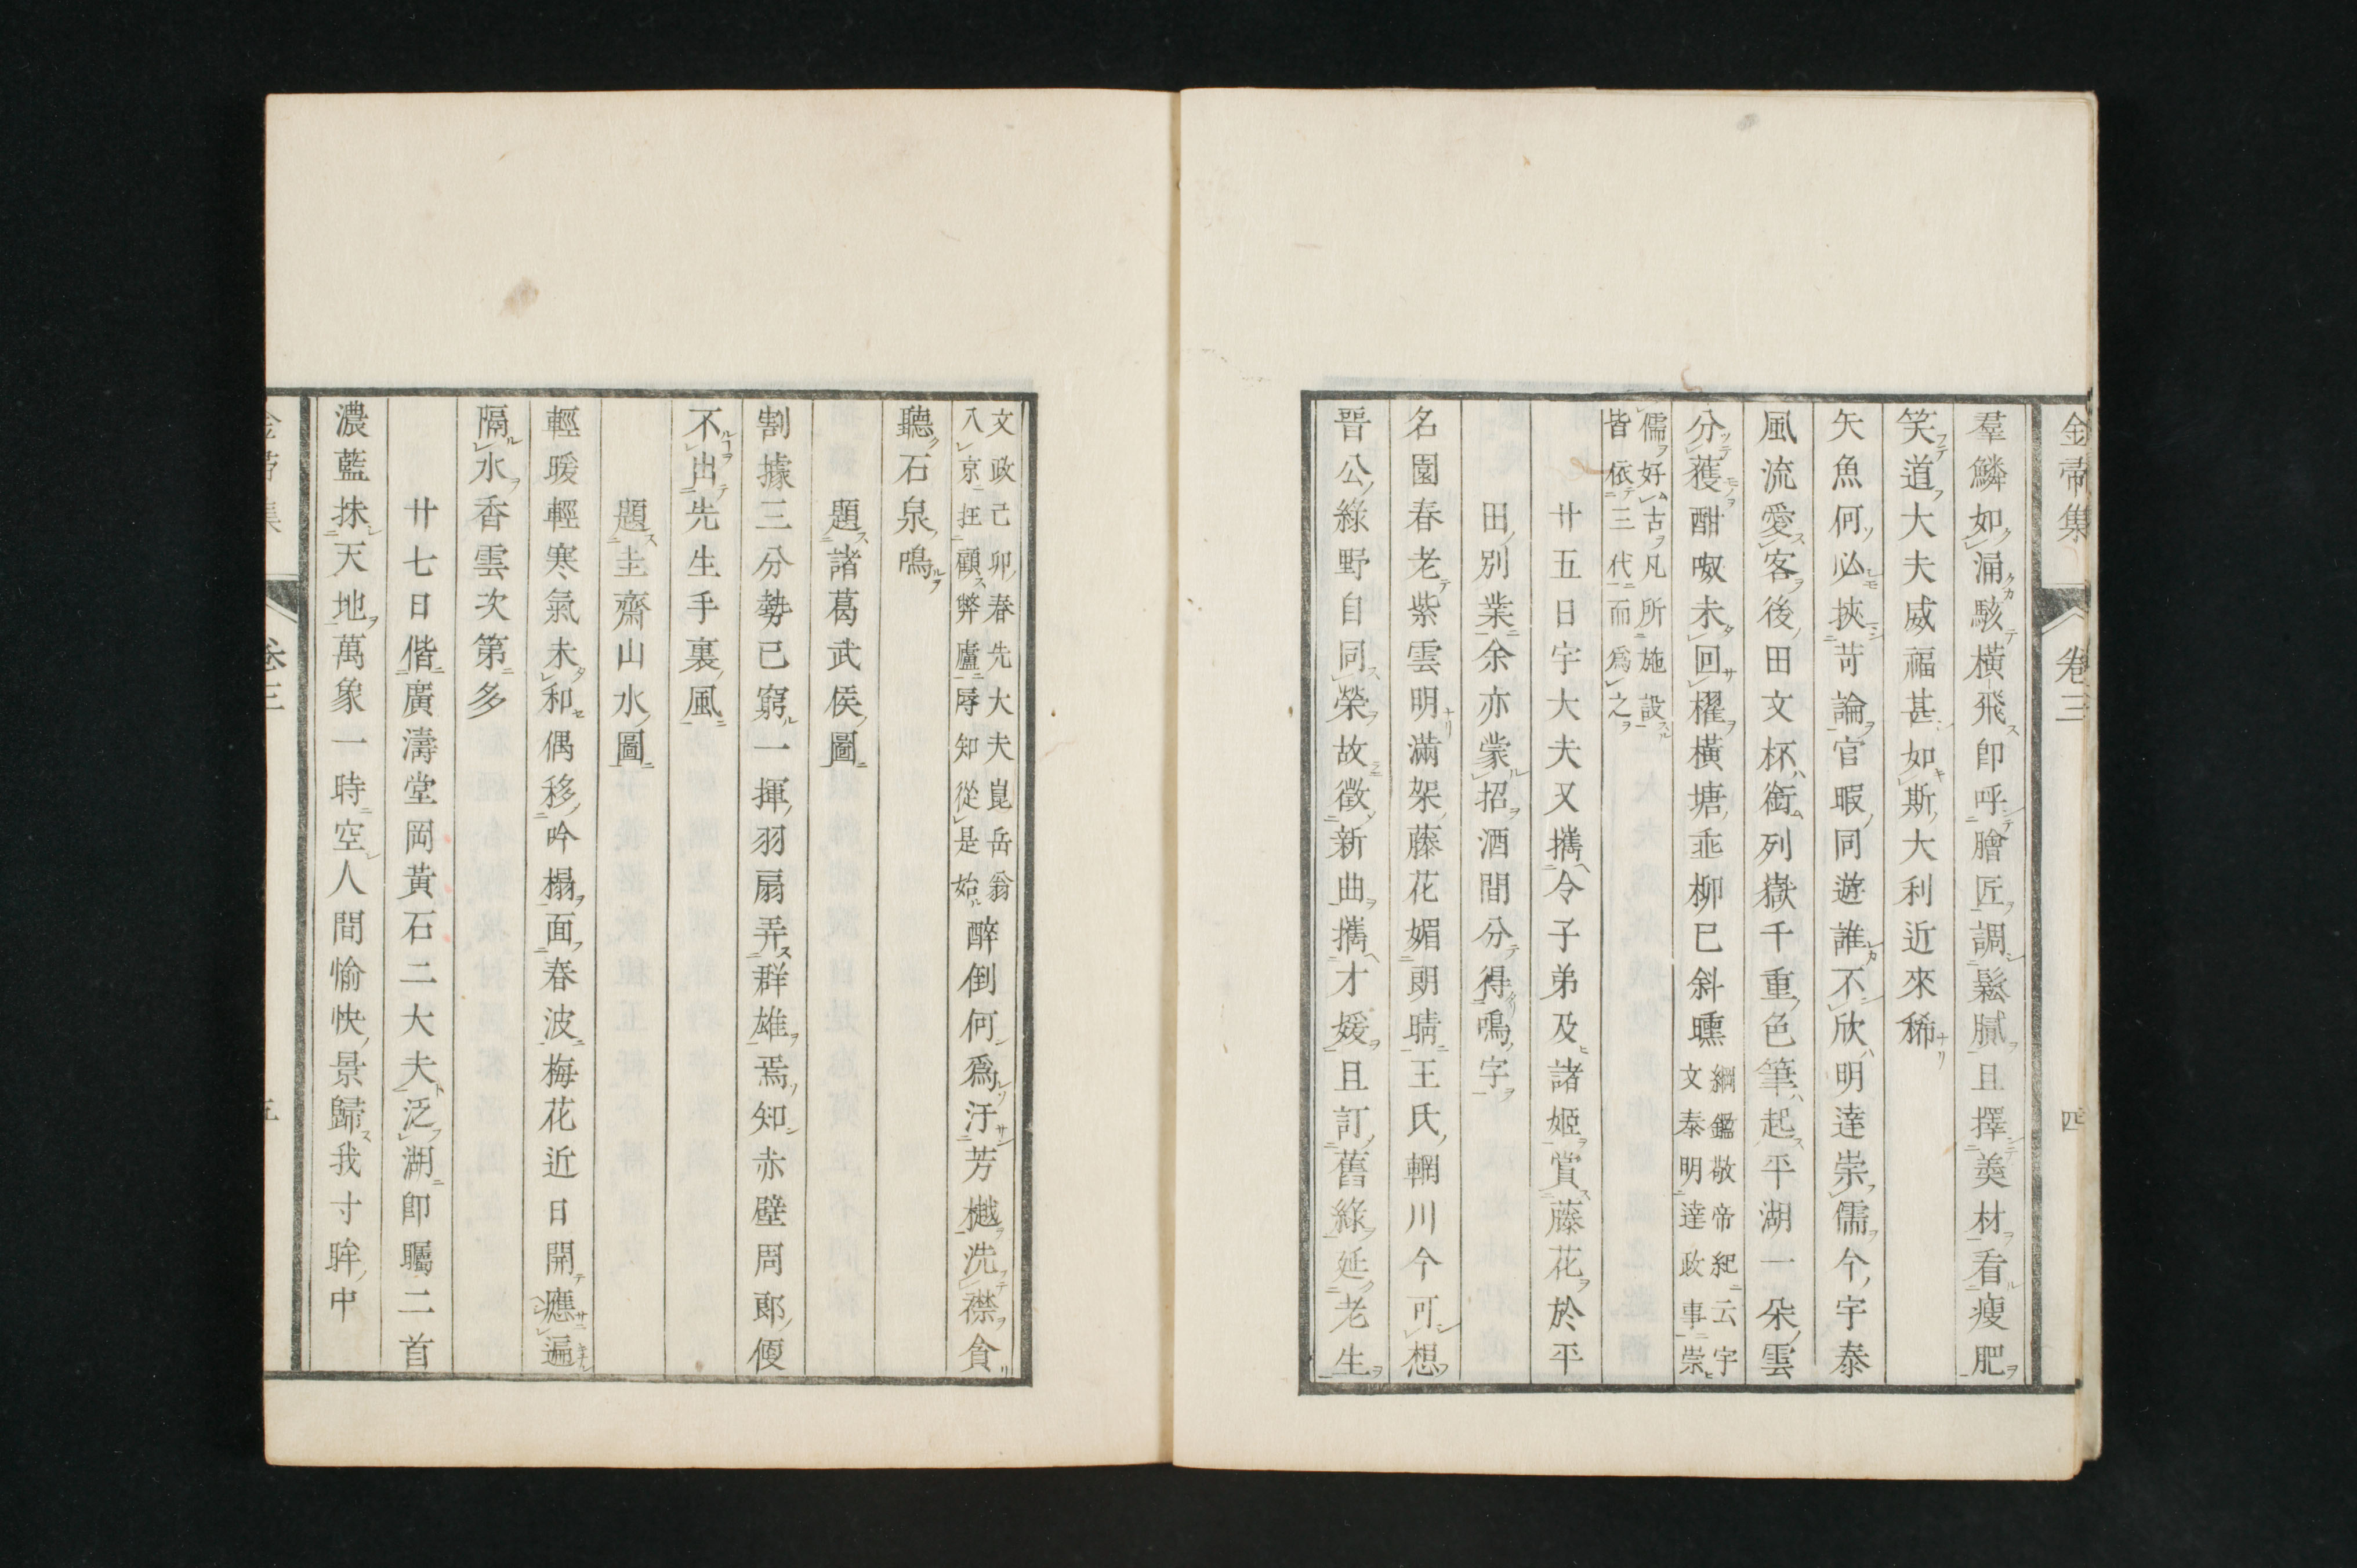 金帚集 卷三 四
羣鱗如涌駭橫飛卽呼膾匠調鬆膩且擇美材看瘦肥
笑道大夫威福甚如斯大利近來稀
矢魚何必挾苛論官暇同遊誰不欣明達崇儒今宇泰
風流愛客後田文杯銜列嶽千重色筆起平湖一朵雲
分獲酣呶未回櫂橫塘垂柳已斜曛
綱鑑敬帝紀云宇
文泰明達政事崇
儒好古凡所施設
皆依三代而爲之
廿五日宇大夫又攜令子弟及諸姬賞藤花於平
田別業余亦蒙招酒間分得鳴字
名園春老紫雲明滿架藤花媚朗晴王氏輞川今可想
晉公綠野自同榮故徵新曲攜才媛且訂舊緣延老生
文政己卯春先大夫崑岳翁
入京枉顧弊廬辱知從是始
醉倒何爲汙芳樾洗襟貪
聽石泉鳴
題諸葛武侯圖
割據三分勢已窮一揮羽扇弄群雄焉知赤壁周郞便
不出先生手裏風
題圭齋山水圖
輕暖輕寒氣未和偶移吟榻面春波梅花近日開應遍
隔水香雲次第多
廿七日偕廣濤堂岡黃石二大夫泛湖卽矚二首
濃藍抹天地萬象一時空人間愉快景歸我寸眸中